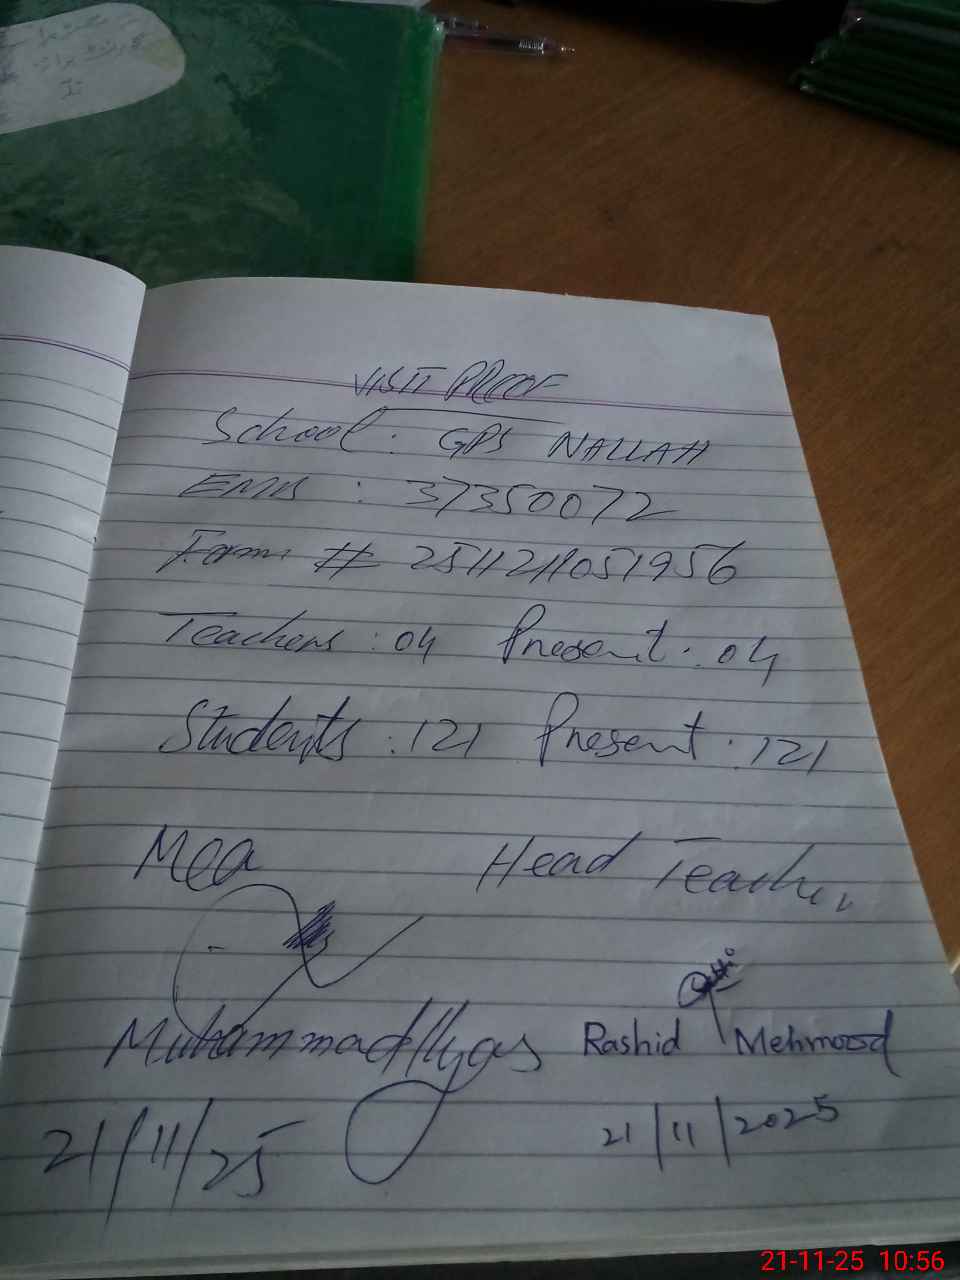 VISIT PROOF
School : GPS NALLAH
EMIS : 37350072
Form # 2511211051956
Teachers : 04 Present : 04
Students : 121 Present : 121
Mea Head Teacher
Muhammad Ilyas Rashid Mehmood
21/11/25 21/11/2025
21-11-25 10:56